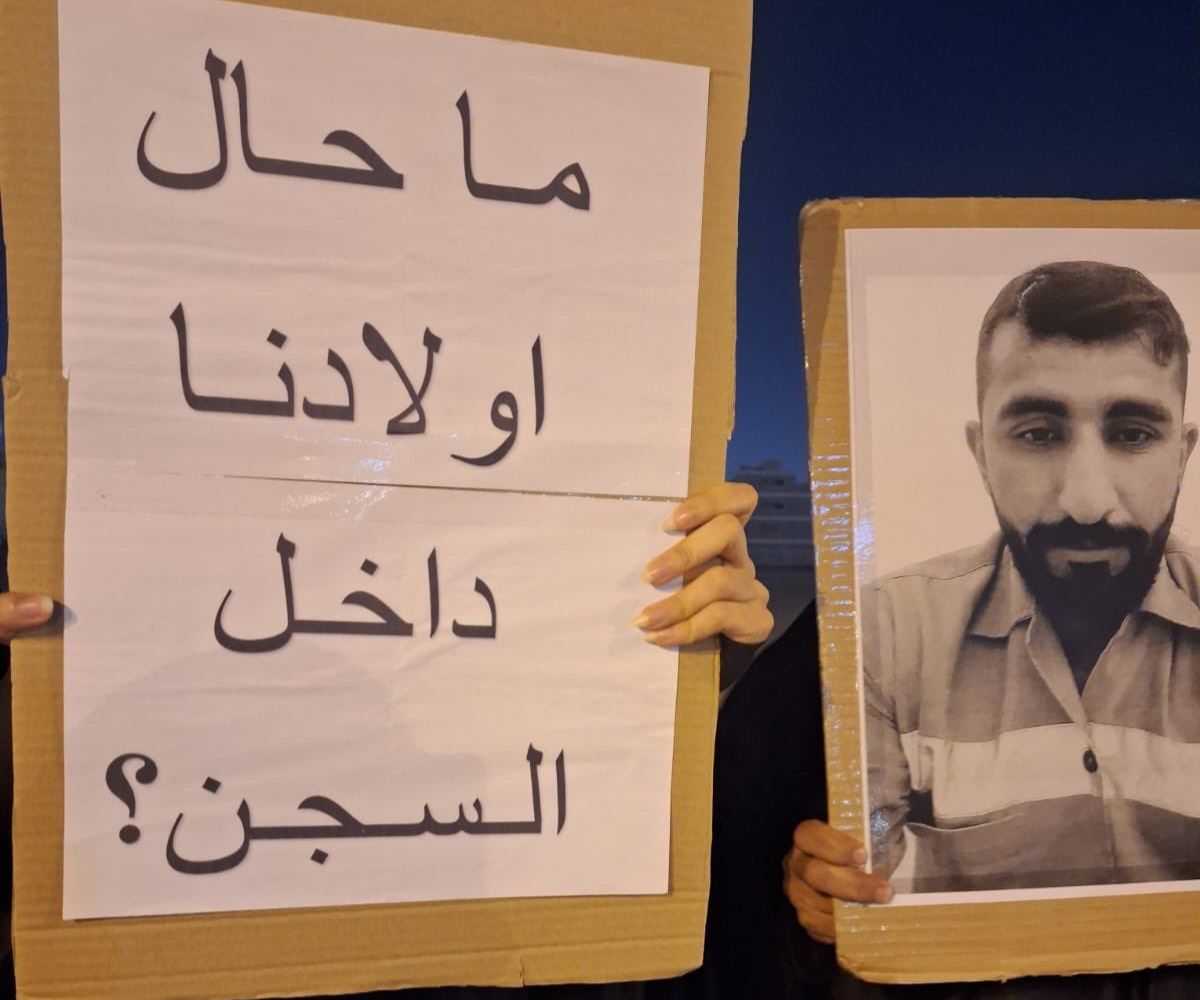 ما حال
اولادنا
داخل
السجن؟